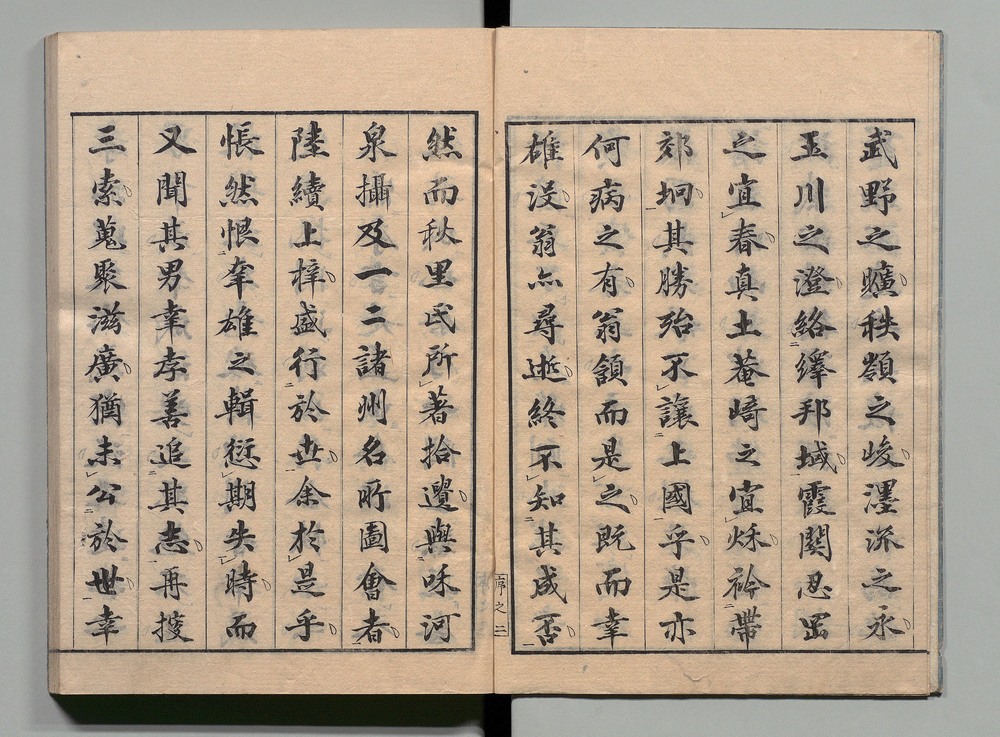 武野之曠秩嶺之峻濹流之永
玉川之澄絡繹邦城霞関忍岡
之宜春真土菴崎之宜秌衿帶
郊坰其勝殆不讓上國乎是亦
何病之有翁頷而是之既而幸
雄没翁亦尋逝終不知其成否
序之二
然而秋里氏所著拾遺與咊河
泉攝及一二諸州名所圖會者
陸續上梓盛行於世余於是乎
悵然恨幸雄之輯愆期失時而
又聞其男幸孝善追其志再搜
三索蒐聚滋廣猶未公於世幸